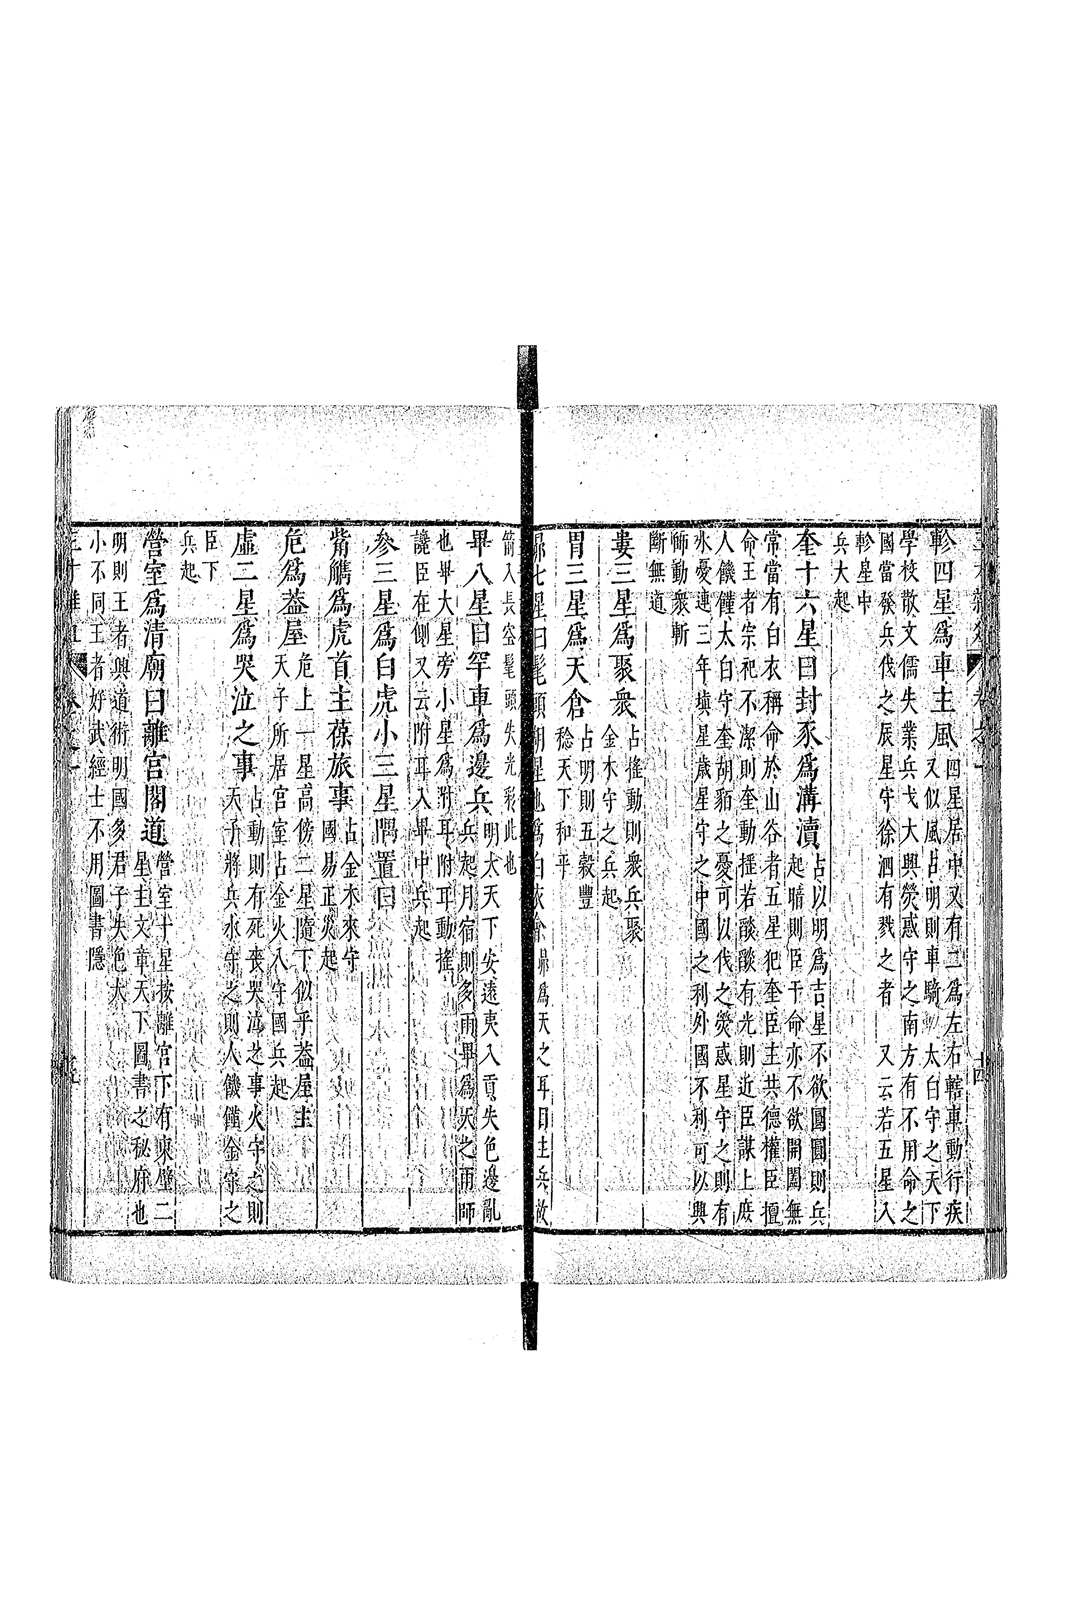 軫四星爲車主風四星居中又有二爲左右轄車動行疾
又似風占明則車騎太白守之天下
學校散文儒失業兵戈大興熒惑守之南方有不用命之
國當發兵伐之辰星守徐泗有戮之者 又云若五星入
軫星中
兵大起
奎十六星曰封豕爲溝瀆占以明爲吉星不欲圓圓則兵
起暗則臣干命亦不欲開闔無
常當有白衣稱命於山谷者五星犯奎臣主共德權臣擅
命王者宗祀不潔則奎動摇若燄燄有光則近臣謀上庶
人饑饉太白守奎胡貊之憂可以伐之熒惑星守之則有
水憂連三年塡星歲星守之中國之利外國不利可以興
師動衆斬
斷無道
婁三星爲聚衆占搖動則衆兵聚
金木守之兵起
胃三星爲天倉占明則五穀豐
稔天下和平
昴七星曰髦頭胡星也爲白衣
爲天之耳目主兵
箭入長盆髦頭失光彩此也
畢八星曰罕車爲邊兵明大天下安遠夷入貢失色邊亂
兵起月宿則多雨畢爲天之雨師
也畢大星旁小星爲附耳附耳動搖
讒臣在側又云附耳入畢中兵起
參三星爲白虎小三星隅置曰
觜觿爲虎首主葆旅事占金木來守
國易正災起
危爲蓋屋危上一星高傍二星隨下似乎蓋屋主
天子所居宮室占金火入守國兵起
虛二星爲哭泣之事占動則有死喪哭泣之事火守之則
天子將兵水守之則人饑饉金守之
臣下
兵起
營室爲清廟曰離宮閣道營室十星按離宮下有東壁二
星主文章天下圖書之秘府也
明則王者興道術明國多君子失色大
小不同王者好武經士不用圖書隱